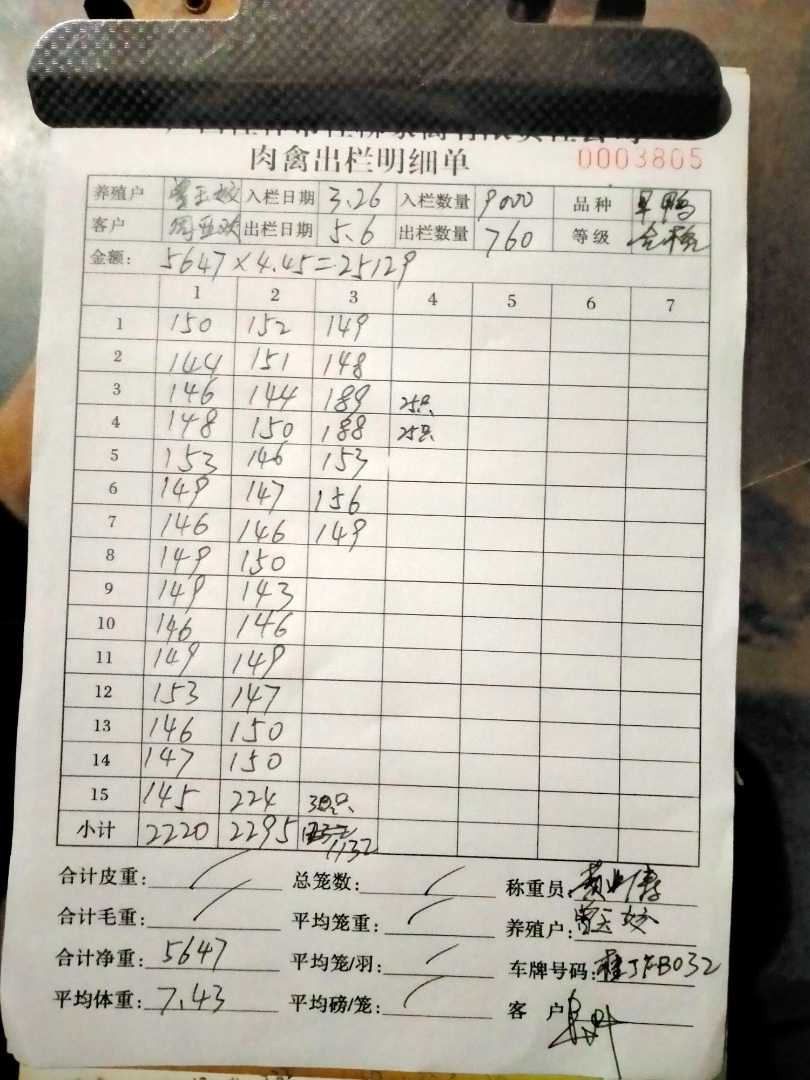 肉禽出栏明细单 0003805
养殖户 曾玉姣 入栏日期 3.26 入栏数量 9000 品种 旱鸭
客户 出栏日期 5.6 出栏数量 760 等级 合格
金额: 5647×4.45=25129
1 2 3 4 5 6 7
1 150 152 149
2 144 151 148
3 146 144 189 25只
4 148 150 188 25只
5 153 146 153
6 149 147 156
7 146 146 149
8 149 150
9 149 143
10 146 146
11 149 149
12 153 147
13 146 150
14 147 150
15 145 224 38只
小计 2220 2295 1132
合计皮重: 总笼数: 称重员:
合计毛重: 平均笼重: 养殖户: 曾玉姣
合计净重: 5647 平均笼/羽: 车牌号码:
平均体重: 7.43 平均磅/笼: 客户